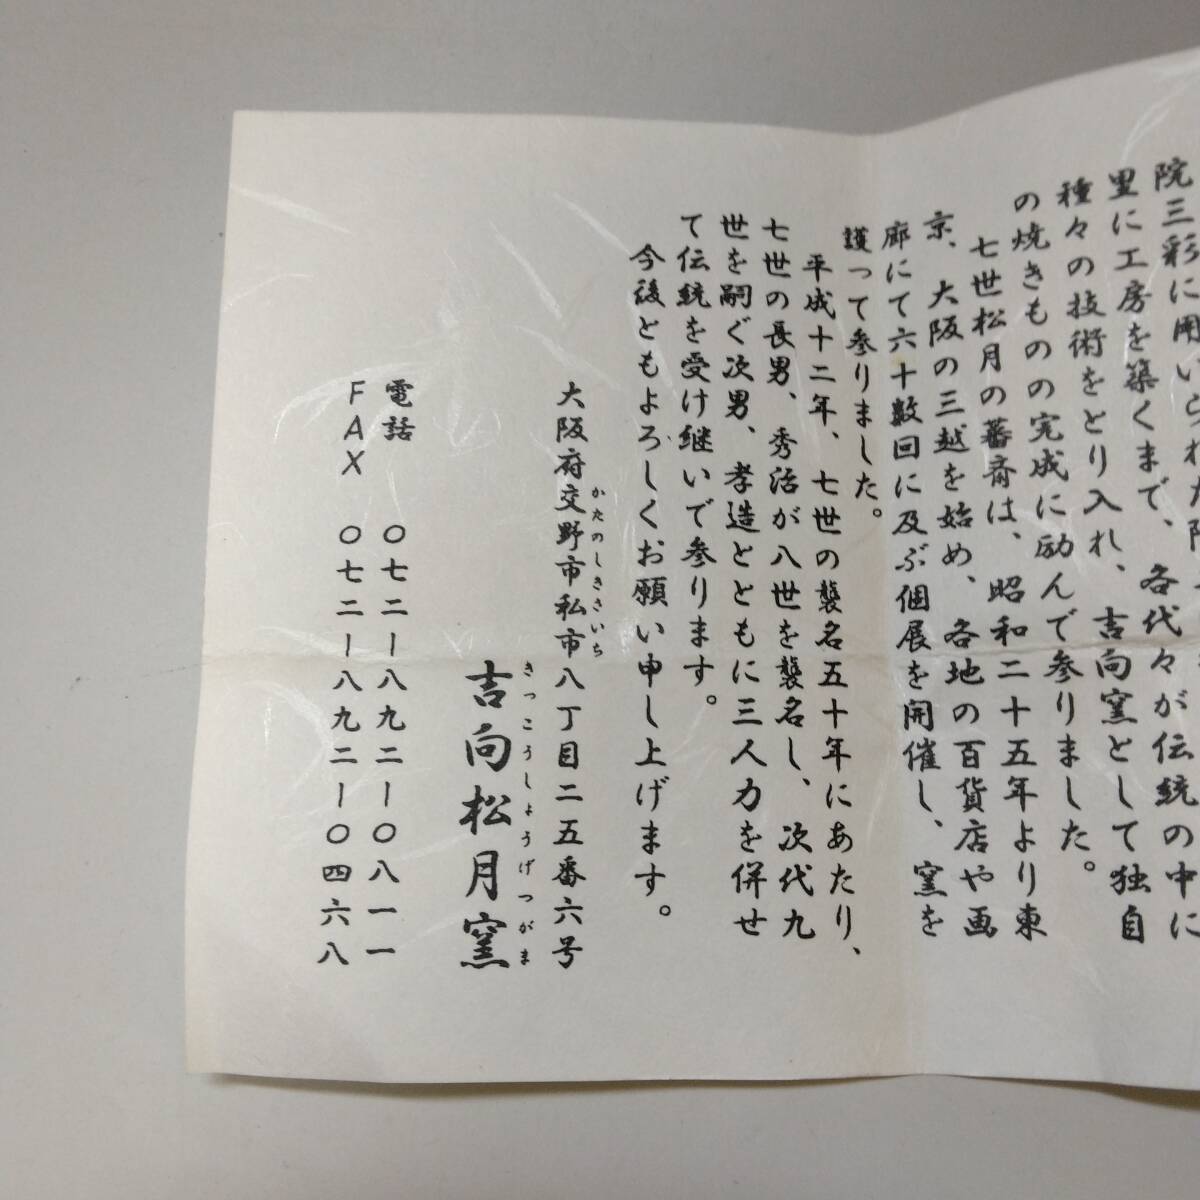 院三彩に用いられた
里に工房を築くまで、各代々が伝統の中に
種々の技術をとり入れ、吉向窯として独自
の焼きものの完成に励んで参りました。
七世松月の蕃斉は、昭和二十五年より東
京、大阪の三越を始め、各地の百貨店や画
廊にて六十数回に及ぶ個展を開催し、窯を
護って参りました。
平成十二年、七世の襲名五十年にあたり、
七世の長男、秀治が八世を襲名し、次代九
世を嗣ぐ次男、孝造とともに三人力を併せ
て伝統を受け継いで参ります。
今後ともよろしくお願い申し上げます。
かたのしきさいち
大阪府交野市私市八丁目二五番六号
きっこうしょうげつがま
吉向松月窯
電話 〇七二ー八九二ー〇八一一
FAX 〇七二ー八九二ー〇四六八